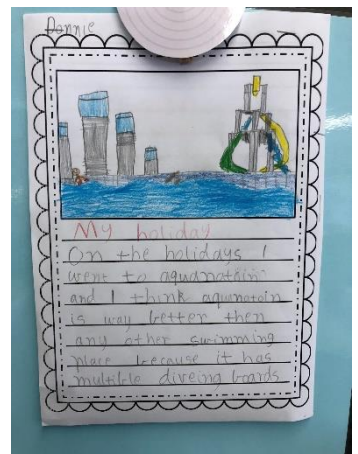 Donnie
My holiday
On the holidays I
went to aquanotain
and I think aquanotoin
is way better then
any other swimming
place because it has
multible diveing boards